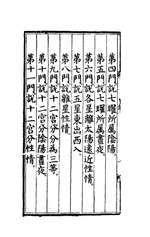 第四門說七曜所屬陰陽
第五門說七曜所屬晝夜
第六門說各星離太陽遠近性情
第七門說五星東出西入
第八門說雜星性情
第九門說十二宮分分為三等
第十門說十二宮分陰陽晝夜
第十一門說十二宮分性情